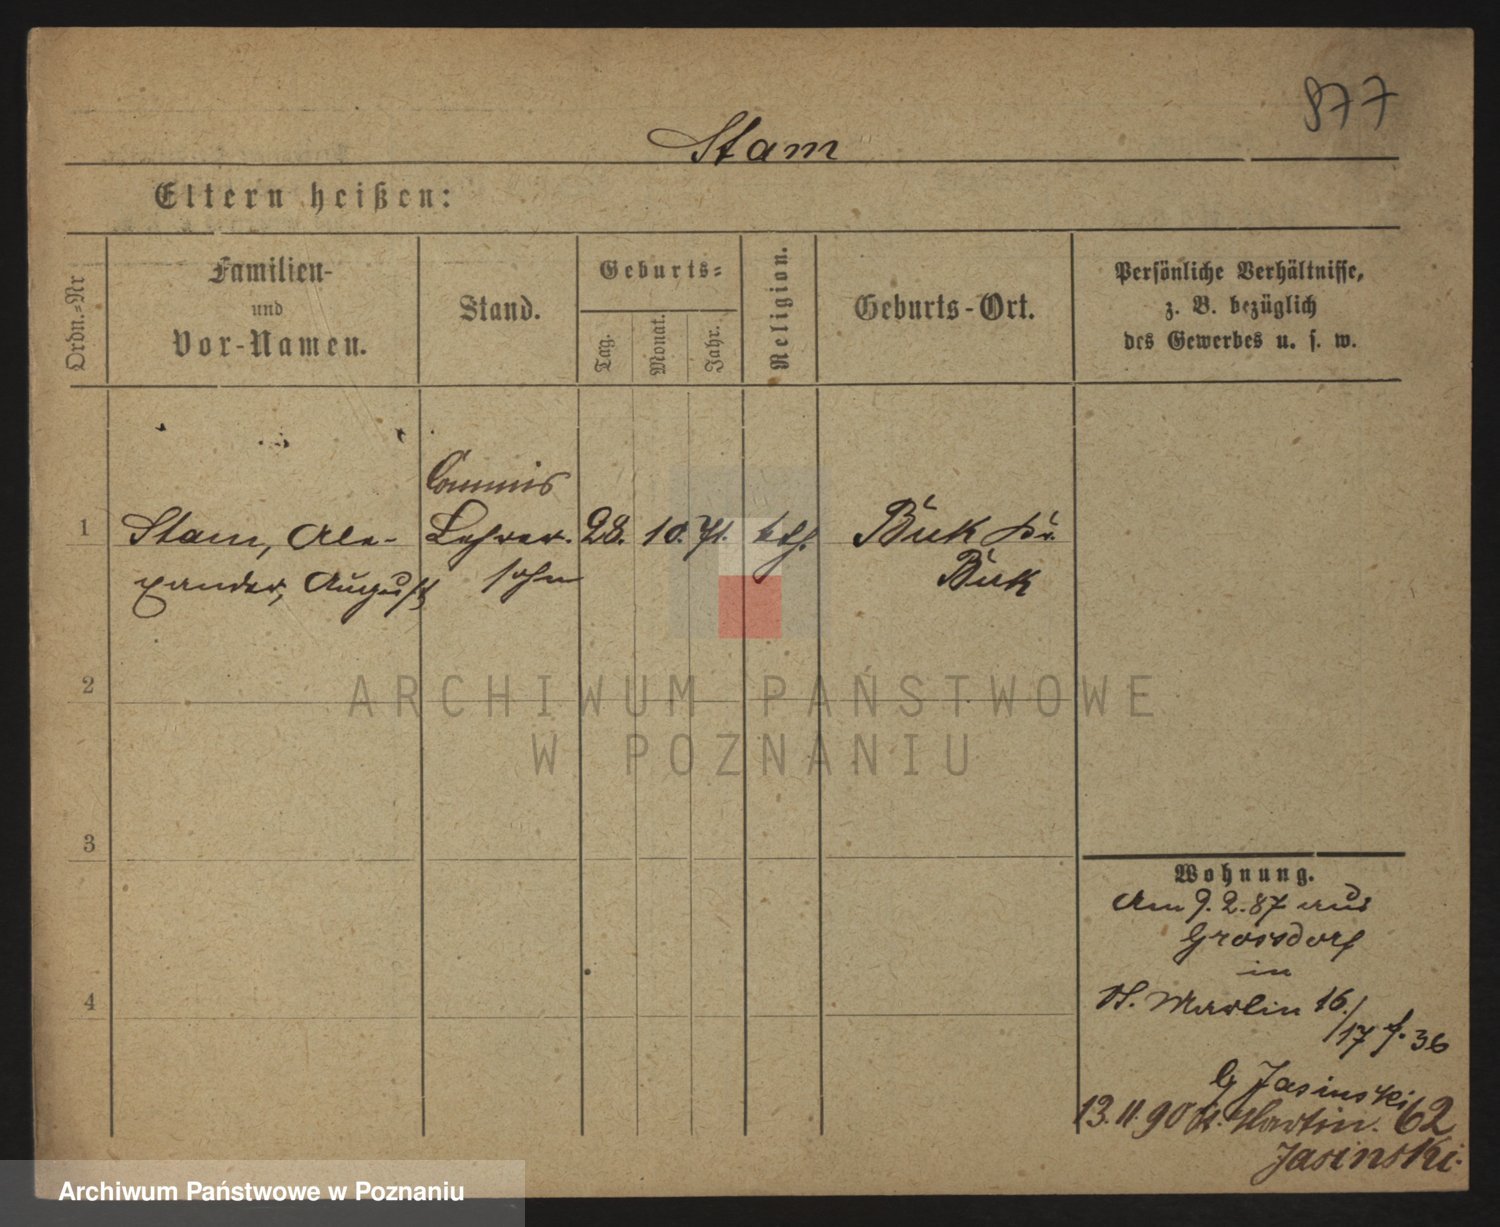 877
Stam
Eltern heißen:
Ordn.=Nr
Familien-
und
Vor-Namen.
Stand.
Geburts=
Tag.
Monat.
Jahr.
Religion.
Geburts-Ort.
Persönliche Verhältnisse,
z. B. bezüglich
des Gewerbes u. s. w.
Commis
1 Stam, Ale- Lehrer- 28. 10. 71. kth. Buk Kr.
xander, August sohn Buk
2
3
4
Wohnung.
Am 9. 2. 87 aus
Grossdorf
in
St. Martin 16./
17 f. 36
b/ Jasinski
13. 11. 90 St. Martin. 62
Jasinski.
ARCHIWUM PAŃSTWOWE
W POZNANIU
Archiwum Państwowe w Poznaniu